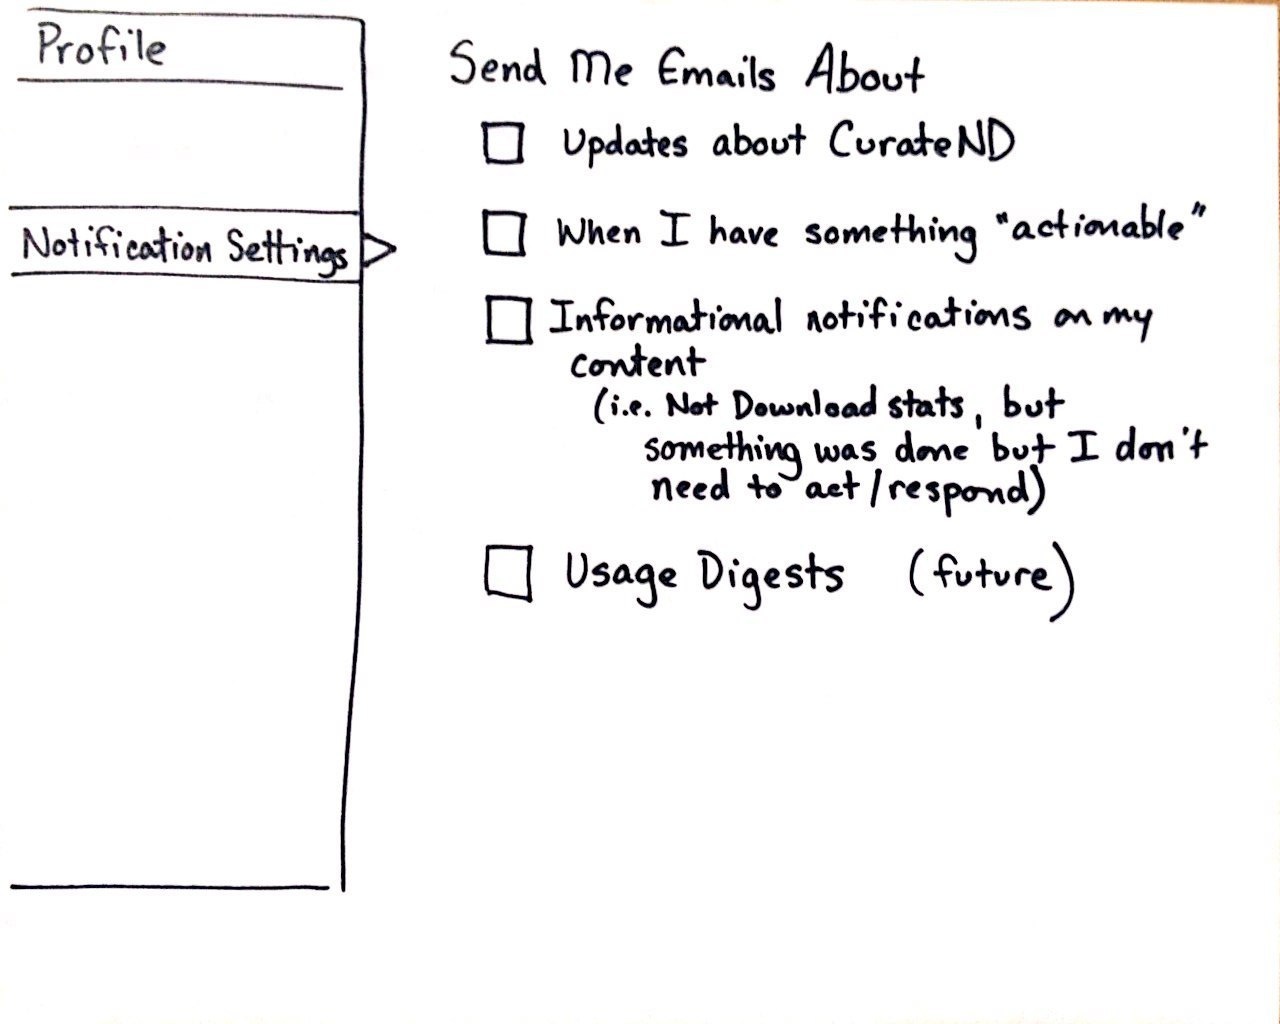 Profile
Notification Settings
Send Me Emails About
Updates about CurateND
When I have something "actionable"
Informational notifications on my
content
(i.e. Not Download stats, but
something was done but I don't
need to act/respond)
Usage Digests (future)